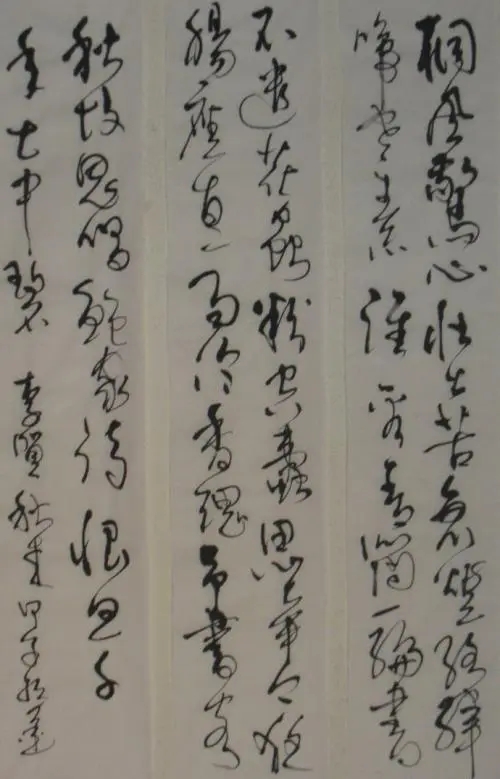 桐風驚心壯士苦衰燈絡緯
啼寒素誰看青簡一編書
不遣花蟲粉空蠹思牽今夜
腸應直雨冷香魂弔書客
秋墳鬼唱鮑家詩恨血千
年土中碧 李賀秋來